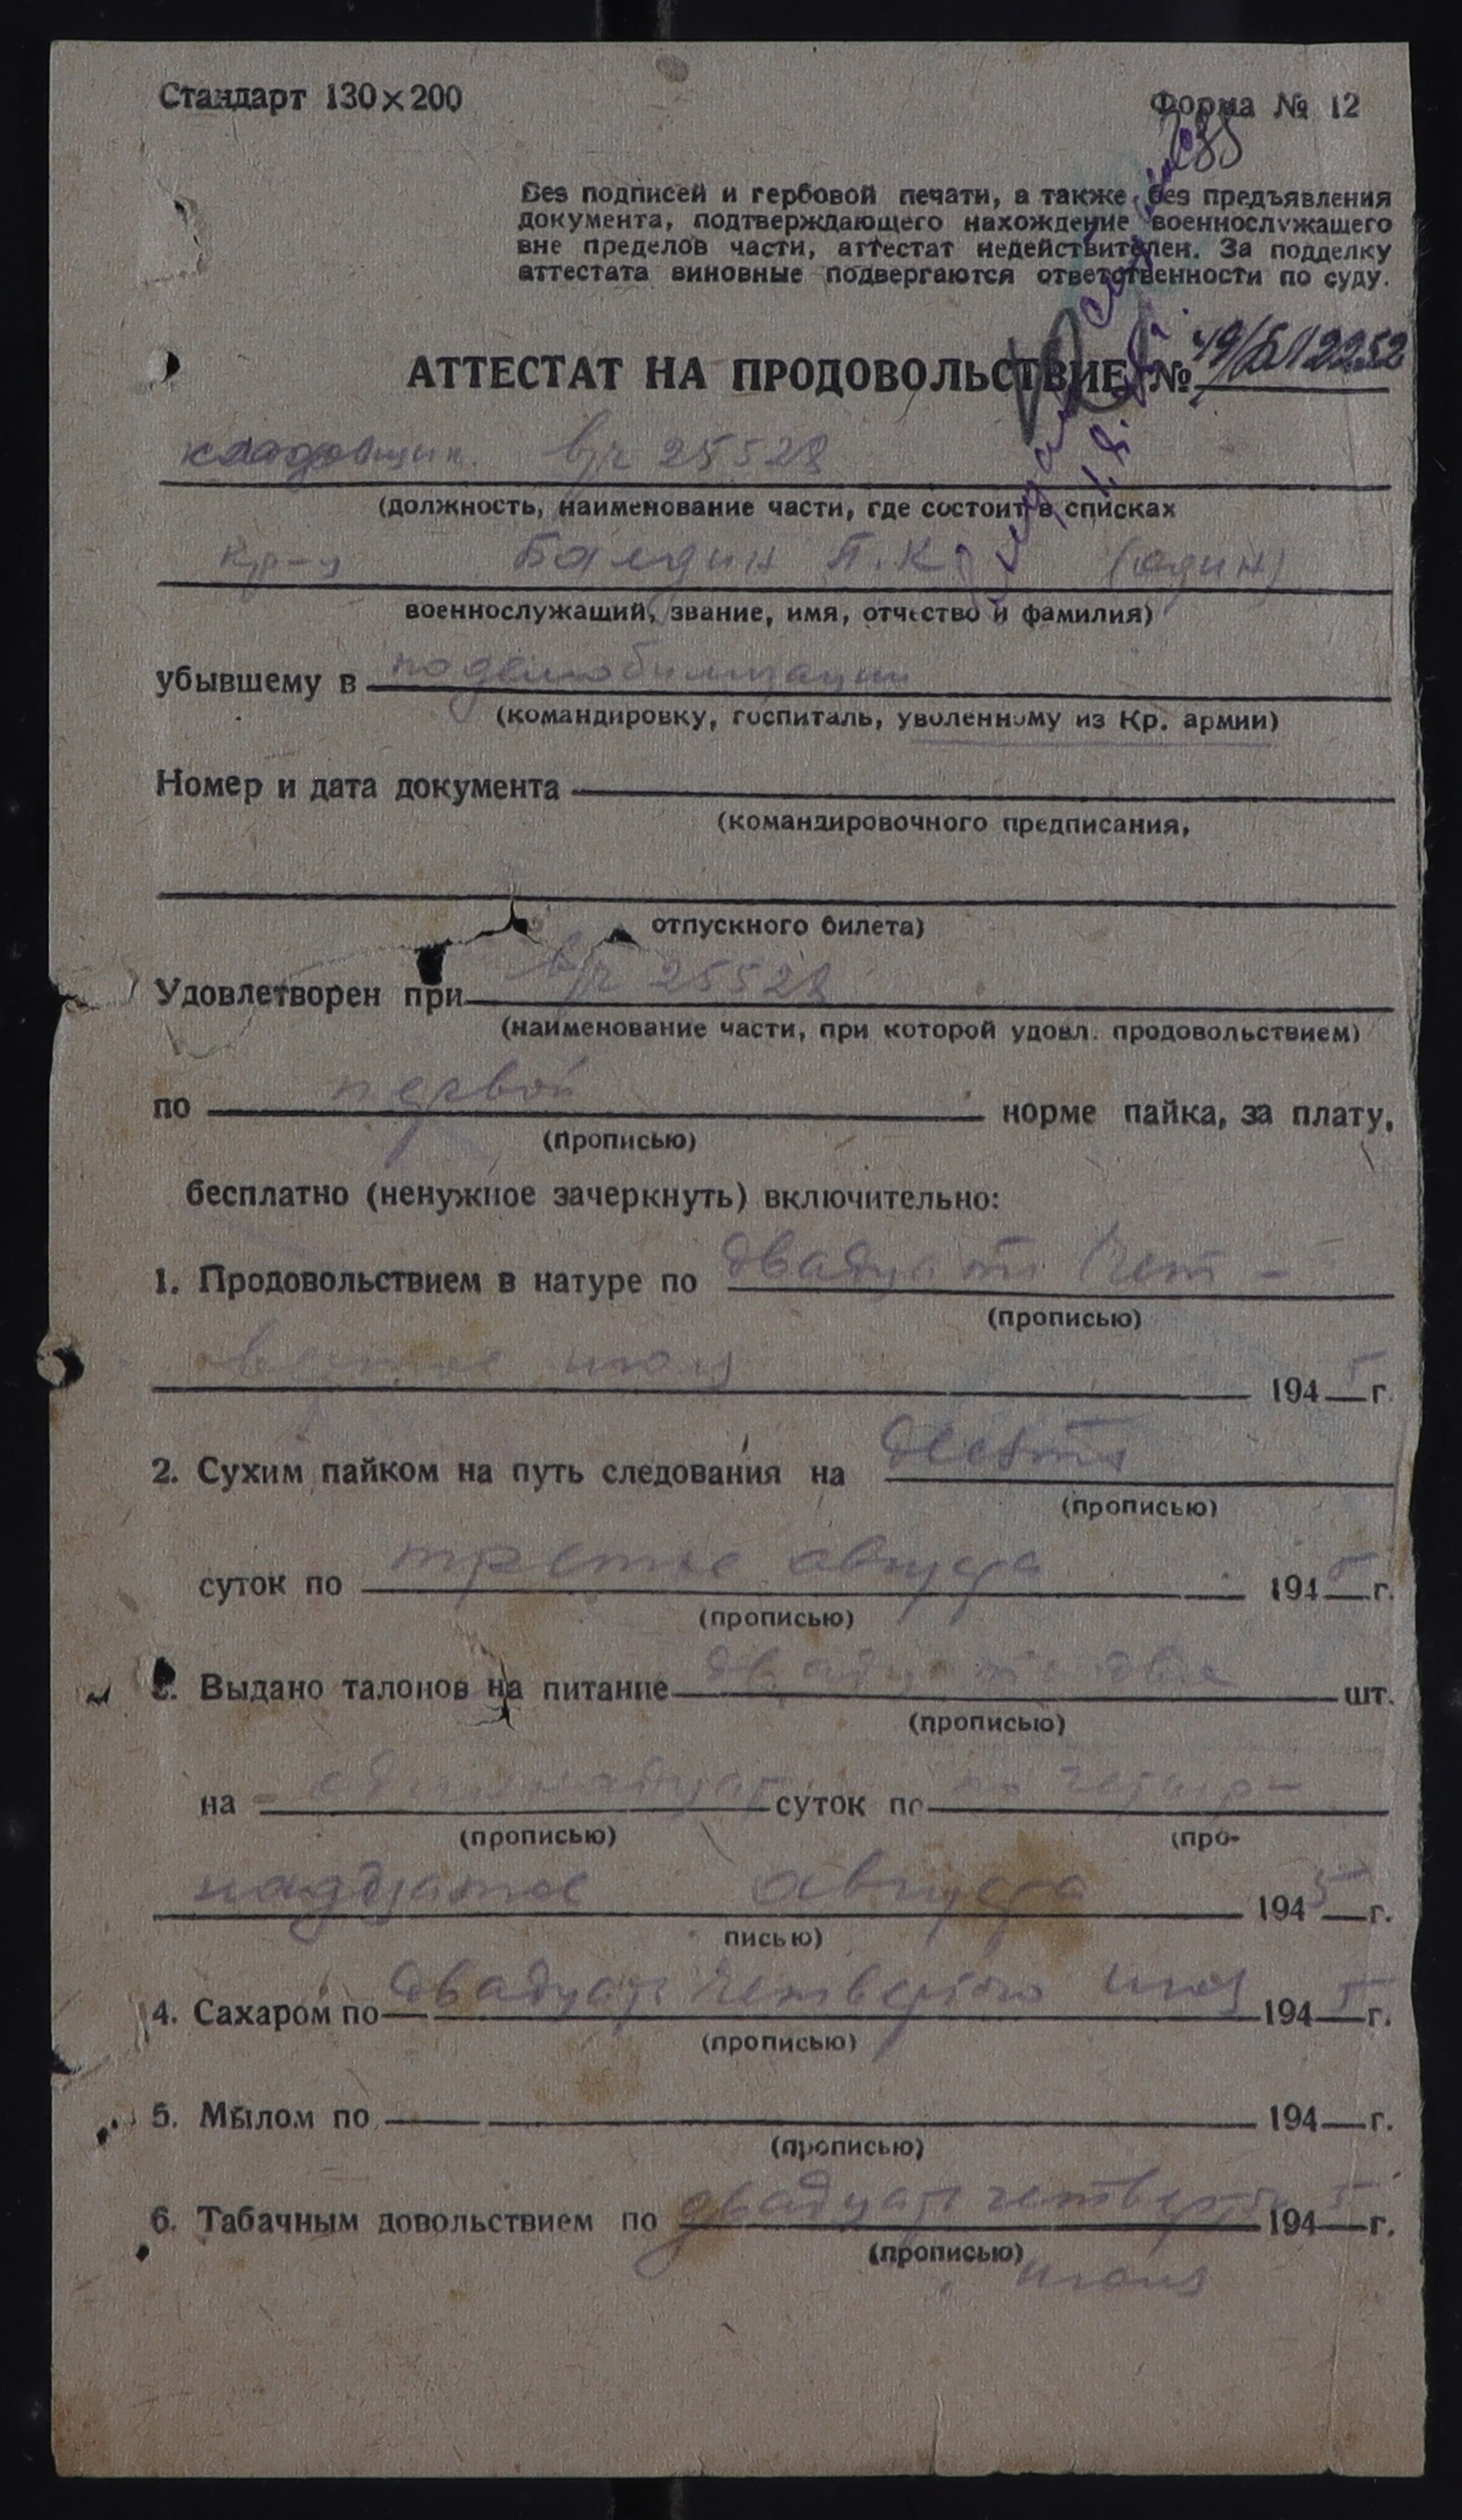 Стандарт 130×200
Форма № 12
Без подписей и гербовой печати, а также без предъявления
документа, подтверждающего нахождение военнослужащего
вне пределов части, аттестат недействителен. За подделку
аттестата виновные подвергаются ответственности по суду.
АТТЕСТАТ НА ПРОДОВОЛЬСТВИЕ №
кладовщик в/ч 25528
(должность, наименование части, где состоит в списках
Кр-ц Балдин П.К. (один)
военнослужащий, звание, имя, отчество и фамилия)
убывшему в по демобилизации
(командировку, госпиталь, уволенному из Кр. армии)
Номер и дата документа
(командировочного предписания,
отпускного билета)
Удовлетворен при в/ч 25528
(наименование части, при которой удовл. продовольствием)
по первой норме пайка, за плату,
(прописью)
бесплатно (ненужное зачеркнуть) включительно:
1. Продовольствием в натуре по двадцать чет-
(прописью)
вертое июля 1945 г.
2. Сухим пайком на путь следования на десять
(прописью)
суток по третье августа 1945 г.
(прописью)
3. Выдано талонов на питание двадцать две шт.
(прописью)
на одиннадцать суток по по четыр-
(прописью) (про-
надцатое августа 1945 г.
писью)
4. Сахаром по двадцать четвертое июля 1945 г.
(прописью)
5. Мылом по 194 г.
(прописью)
6. Табачным довольствием по двадцать четверт 1945 г.
(прописью)
июля